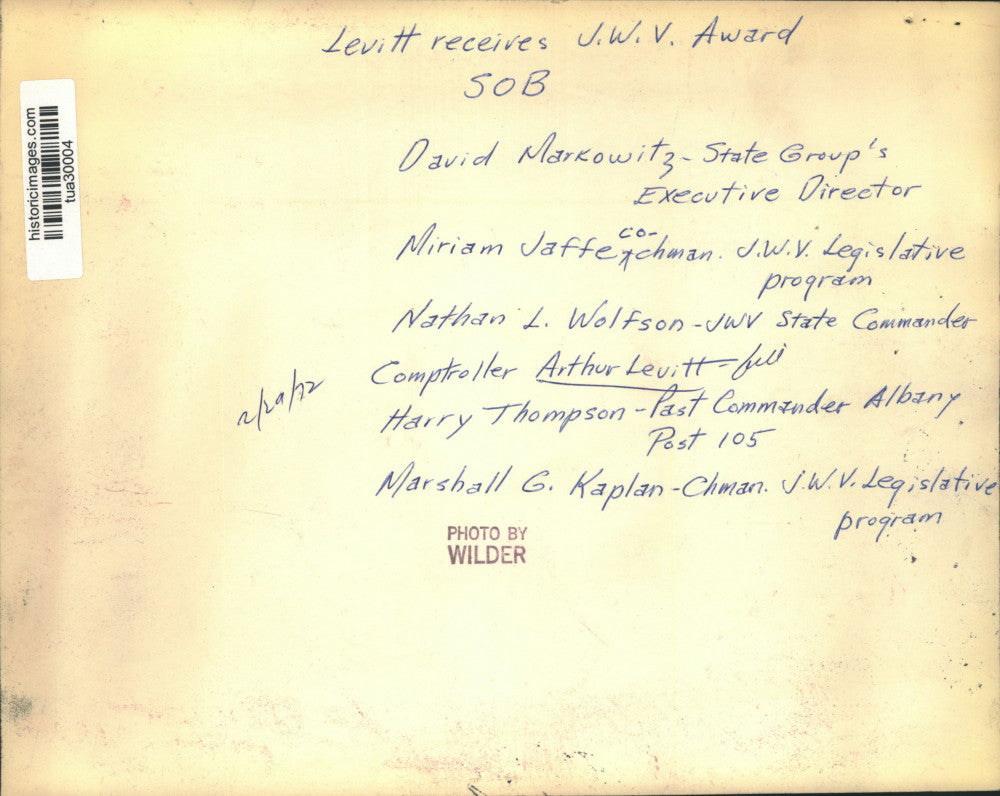 Levitt receives J.W.V. Award
SOB
David Markowitz - State Group's
Executive Director
Miriam Jaffe co-chman. J.W.V. Legislative
program
Nathan L. Wolfson - JWV State Commander
Comptroller Arthur Levitt - file
Harry Thompson - Past Commander Albany
Post 105
Marshall G. Kaplan - Chman. J.W.V. Legislative
program
2/29/72
PHOTO BY
WILDER
historicimages.com
tua30004